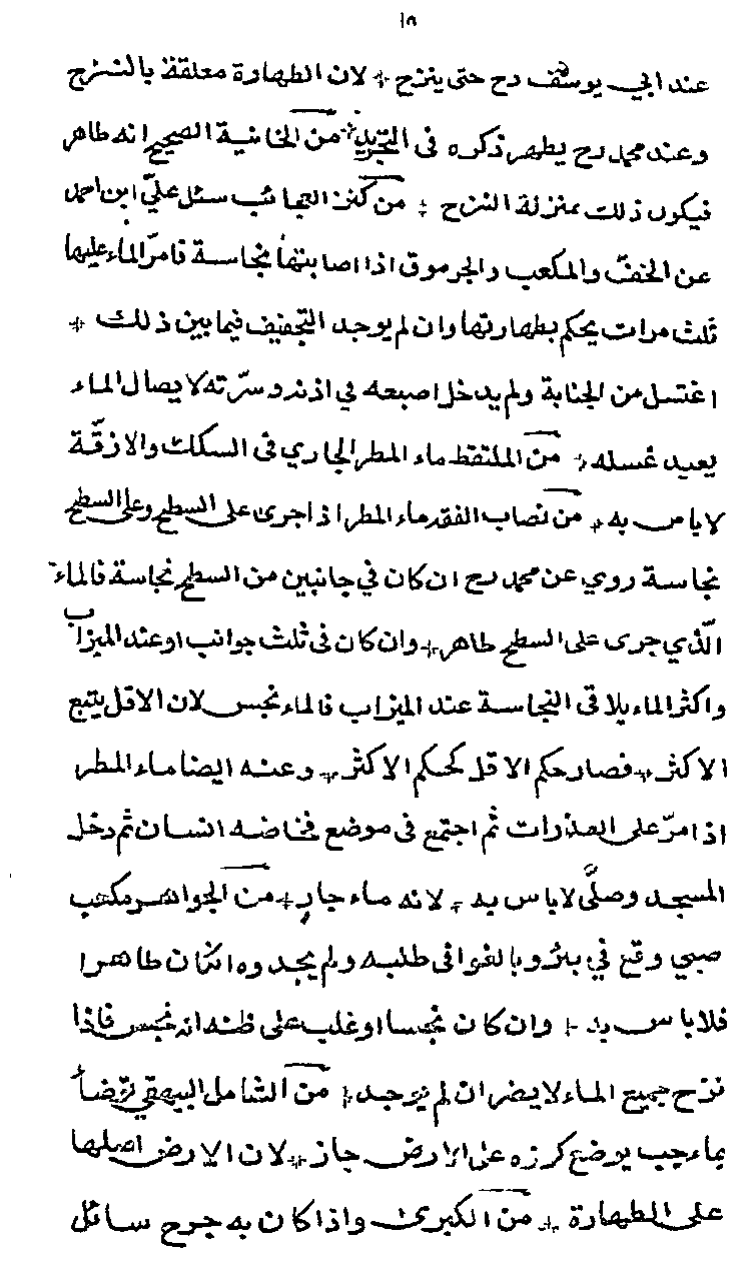 ١٥
عند ابي يوسف رح حتى ينزح * لان الطهارة معلقة بالنزح
وعند محمد رح يطهر ذكره فى التجريد * من الخانية الصحيح انه طاهر
فيكون ذلك بمنزلة النزح * من كنز العجائب سئل عليّ ابن احمد
عن الخفّ والمكعب والجرموق اذا اصابتها نجاسة فامرّ الماء عليها
ثلث مرات يحكم بطهارتها وان لم يوجد التجفيف فيما بين ذلك *
اغتسل من الجنابة ولم يدخل اصبعه في اذنه وسرّته لايصال الماء
يعيد غسله * من الملتقط ماء المطر الجاري فى السكك والازقّة
لاباس به * من نصاب الفقه ماء المطر اذا جرى على السطح وعلى السطح
نجاسة روي عن محمد رح ان كان في جانبين من السطح نجاسة فالماء
الّذي جرى على السطح طاهر * وان كان فى ثلث جوانب او عند الميزاب
واكثر الماء يلاقى النجاسة عند الميزاب فالماء نجس لان الاقل يتبع
الاكثر * فصار حكم الاقل كحكم الاكثر * وعنه ايضا ماء المطر
اذا مرّ على العذرات ثم اجتمع فى موضع فخاضه انسان ثم دخل
المسجد وصلّى لاباس به * لانه ماء جارٍ * من الجواهر مكعب
صبي وقع في بئر وبالغوا فى طلبه ولم يجدوه ان كان طاهرا
فلاباس به * وان كان نجسا او غلب على ظنه انه نجس فاذا
نزح جميع الماء لايضر ان لم يوجد * من الشامل البيهقي توضأ
بماء جب يوضع كوزه على الارض جاز * لان الارض اصلها
على الطهارة * من الكبرى واذا كان به جرح سائل